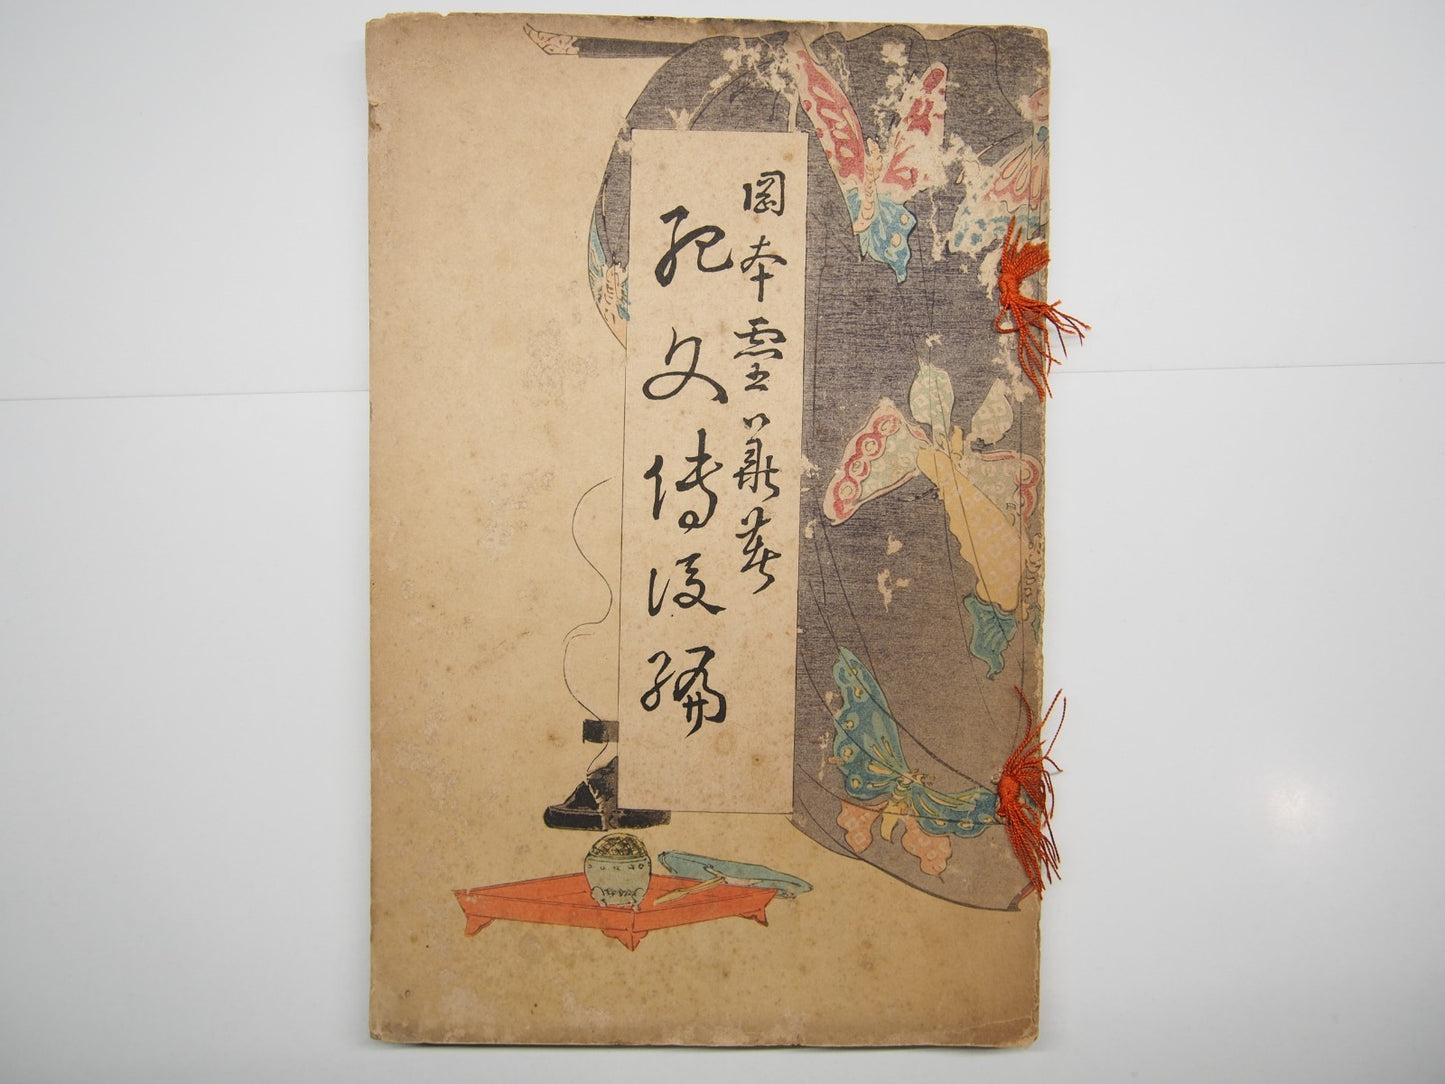 岡本霊華著
文傳後編